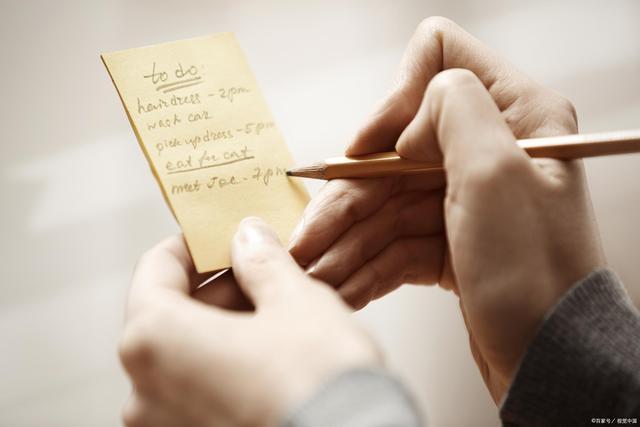 to do
hairdress - 2pm
wash car
pick up dress - 5pm
eat for cat
meet Joe - 7pm
©百家号／视觉中国